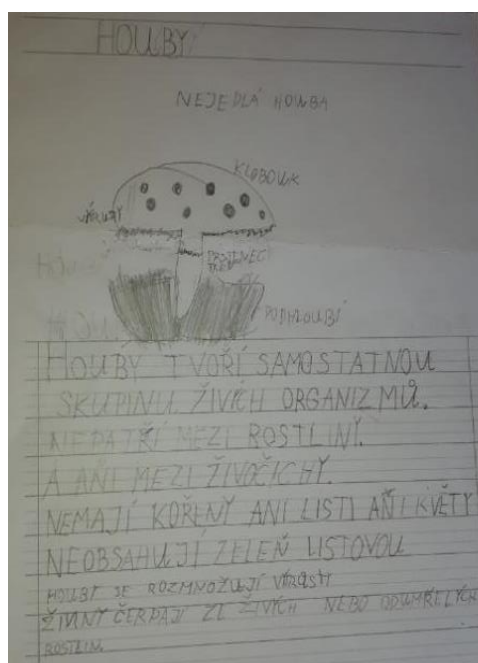 HOUBY
NEJEDLÁ HOUBA
KLOBOUK
VÝTRUSY
PRSTENEC
PODHLOUBÍ
HOUBY TVOŘÍ SAMOSTATNOU
SKUPINU ŽIVÍCH ORGANIZMŮ.
NEPATŘÍ MEZI ROSTLINY.
A AŇI MEZI ŽIVOČICHY.
NEMAJÍ KOŘENY ANI LISTI AŇI KVĚTY
NEOBSAHUJÍ ZELEŇ LISTOVOU
HOUBY SE ROZMNOŽUJÍ
ŽIVINY ČERPAJÍ ZE ŽIVÍCH NEBO ODUMŘELÝCH
ROSTLIN.